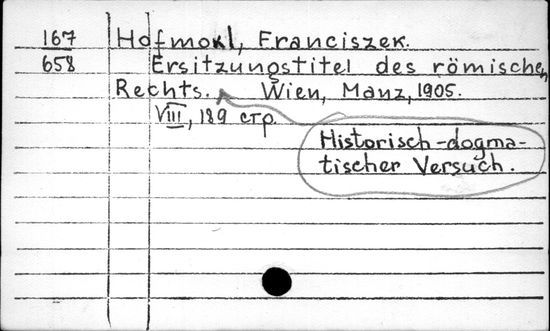 167 Hofmokl, Franciszek.
658 Ersitzungstitel des römischen
Rechts. Wien, Manz, 1905.
VIII, 189 стр.
Historisch-dogma-
tischer Versuch.